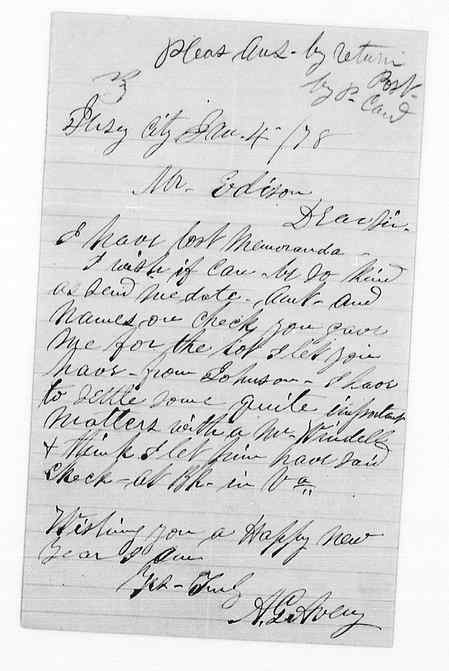 Pleas Ans- by return
by P. Post-
Card
Jersey City Jan. 4 /78
Mr. Edison
Dear Sir.
I have lost Memoranda-
I wish if can- be so kind
as send me date- Amt- and
names, on check you gave
me for the lot I let you
have- from Johnson- I have
to settle some quite important
matters with a Mr.
& think I let him have said
check- at Bk- in Va
Wishing you a Happy New
Year I am
Yrs- Truly
A. G. Avery